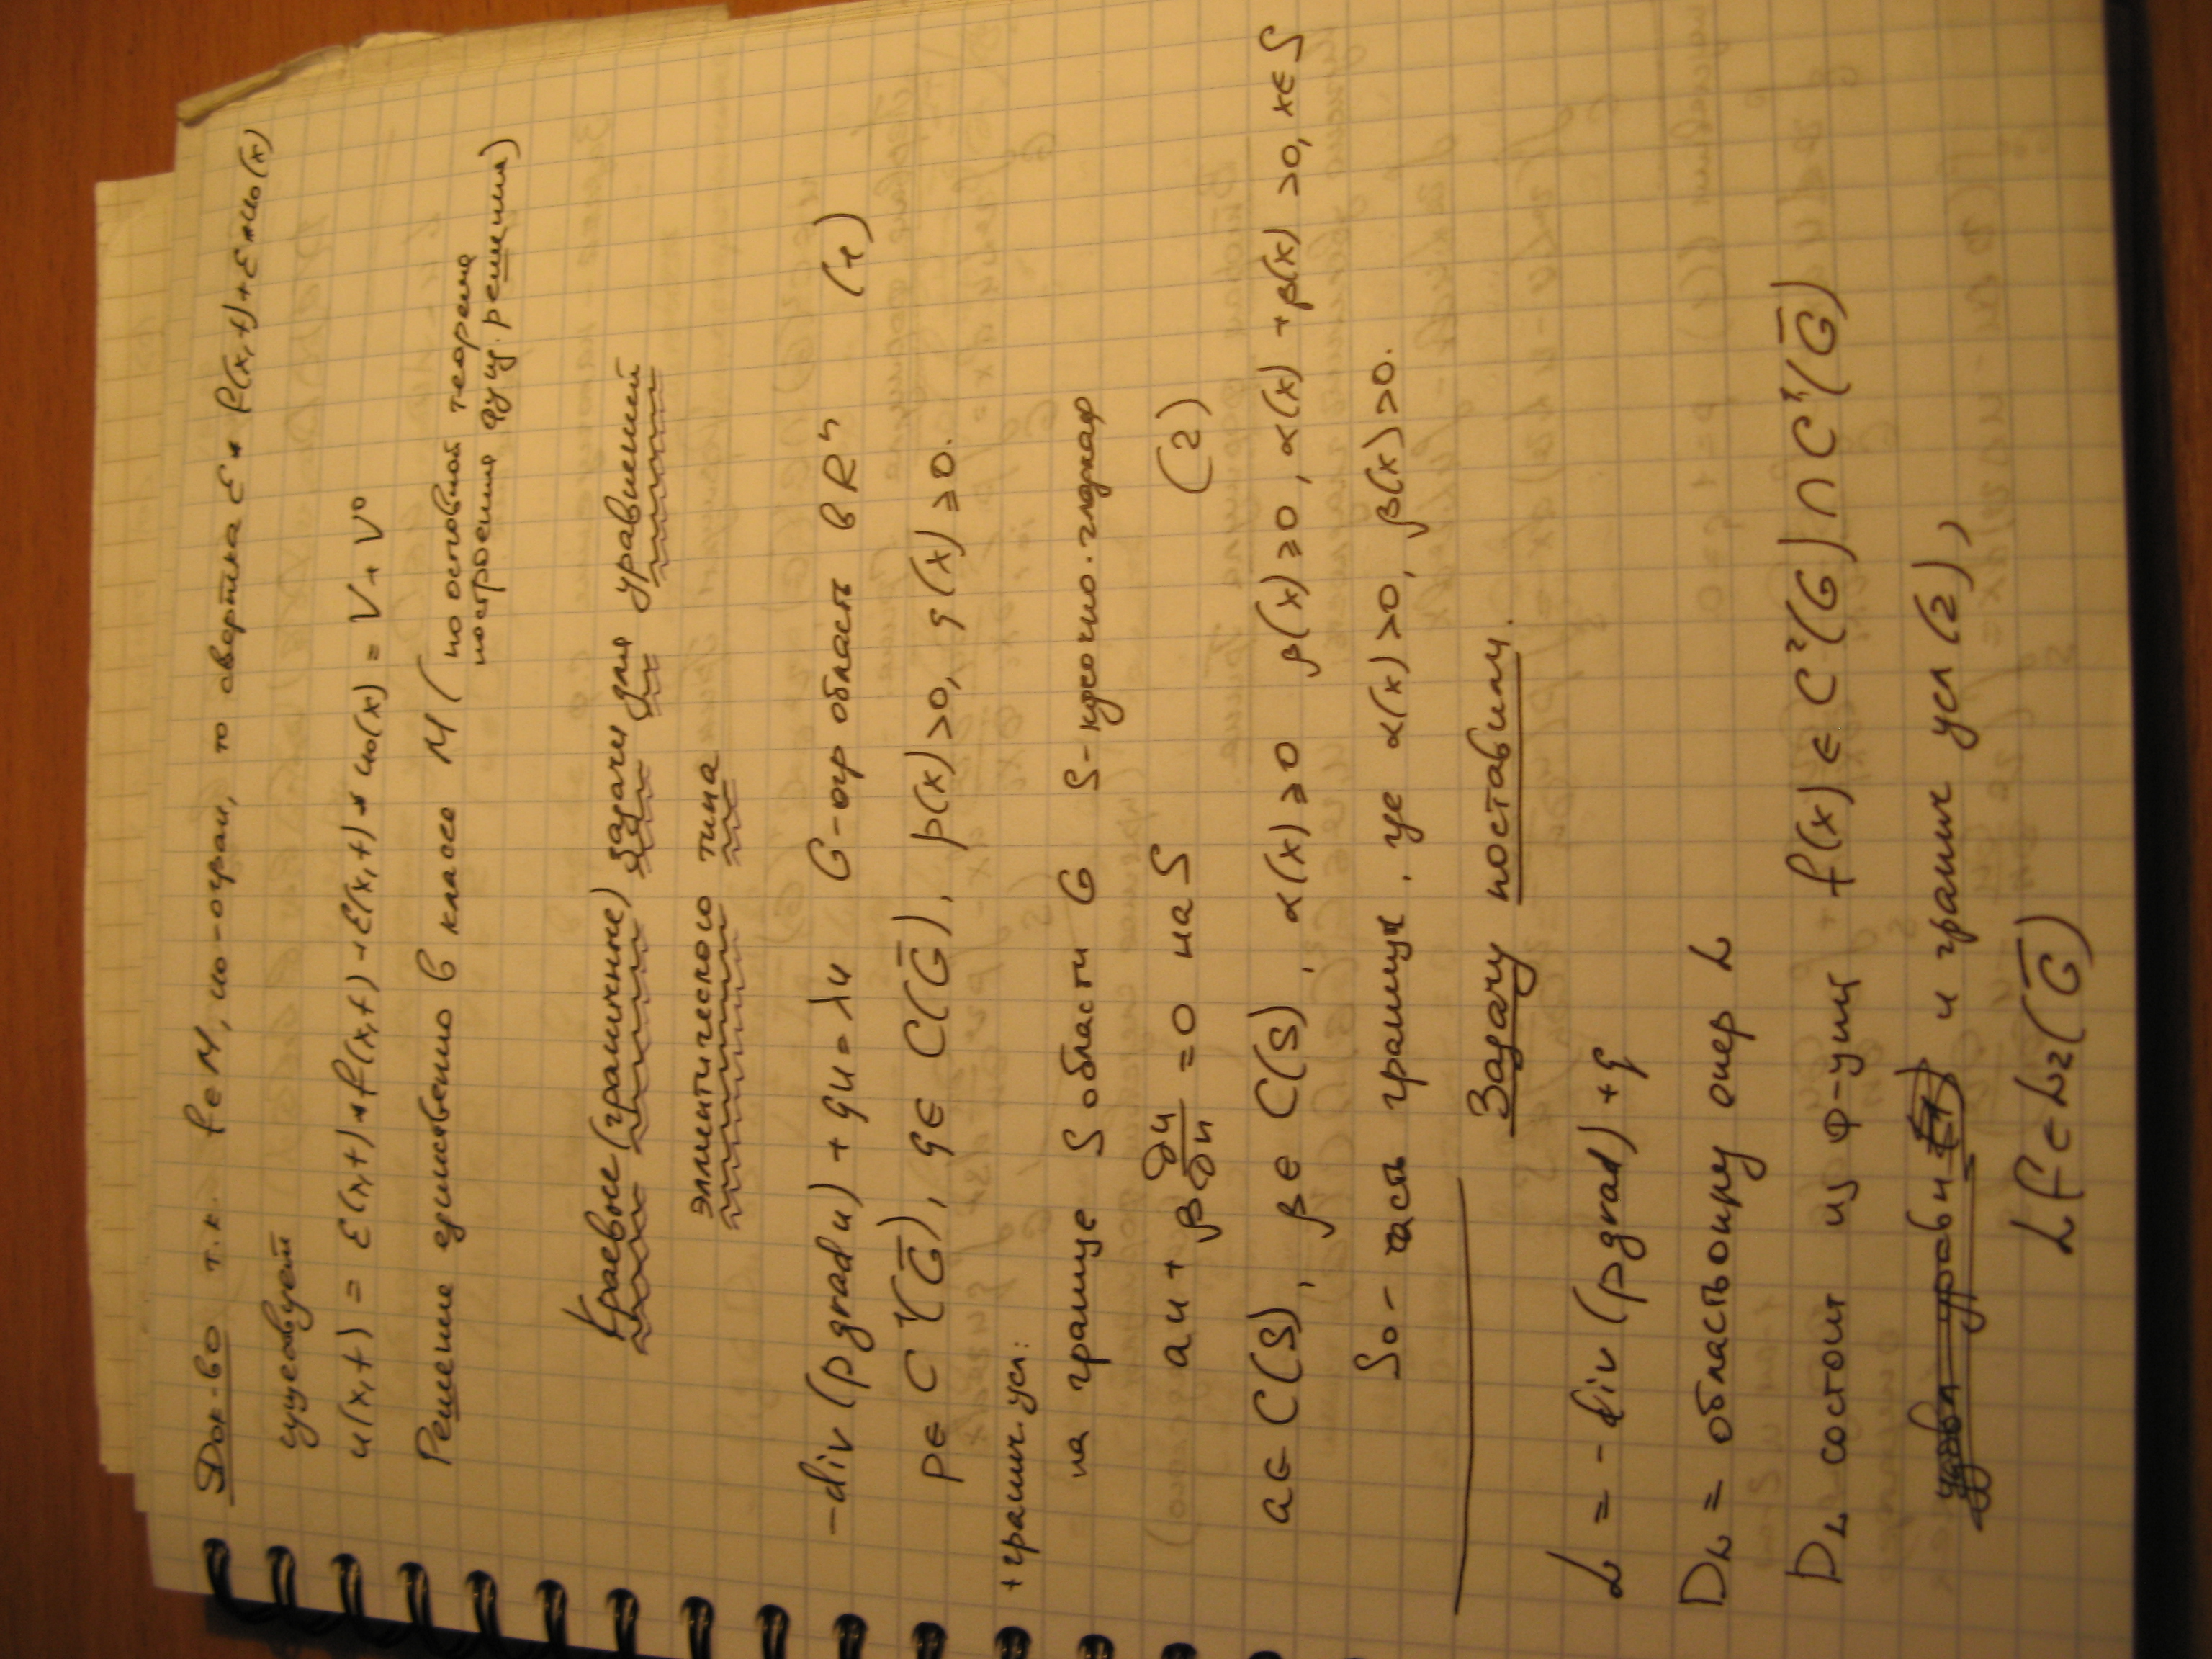 Док-во т.к. f∈M, u₀-огран, то свертка ℰ * f(x,t)+ℰ*u₀(x)
существует
u(x,t) = ℰ(x,t)*f(x,t)+ℰ(x,t)*u₀(x) = V+V⁰
Решение единственно в классе M (по основной теореме
построения фунд. решения)
Краевые (граничные) задачи для уравнений
эллиптического типа
-div(p grad u) + qu = λu G-огр область в Rⁿ (1)
p∈C¹(G̅), q∈C(G̅), p(x)>0, q(x)≥0.
+гранич. усл:
на границе S области G S-кусочно. гладкая
αu + β ∂u/∂n = 0 на S (2)
α∈C(S), β∈C(S), α(x)≥0 β(x)≥0, α(x)+β(x)>0, x∈S
S₀ - часть границы, где α(x)>0, β(x)>0.
Задачу поставили.
L = -div(p grad)+q
D_L = область опред опер L
D_L состоит из ф-ций f(x)∈C²(G)∩C¹(G̅)
и гранич усл (2),
Lf∈L₂(G̅)